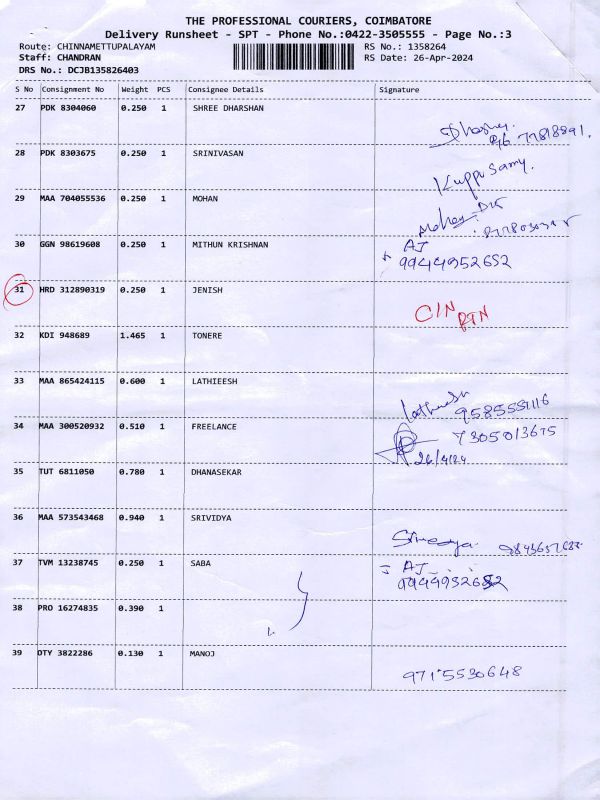 THE PROFESSIONAL COURIERS, COIMBATORE
Delivery Runsheet - SPT - Phone No.:0422-3505555 - Page No.:3
Route: CHINNAMETTUPALAYAM RS No.: 1358264
Staff: CHANDRAN RS Date: 26-Apr-2024
DRS No.: DCJB135826403
S No Consignment No Weight PCS Consignee Details Signature
27 PDK 8304060 0.250 1 SHREE DHARSHAN
28 PDK 8303675 0.250 1 SRINIVASAN
Kuppusamy.
29 MAA 704055536 0.250 1 MOHAN
30 GGN 98619608 0.250 1 MITHUN KRISHNAN AJ
9944952652
31 HRD 312890319 0.250 1 JENISH
C/N
RTN
32 KDI 948689 1.465 1 TONERE
33 MAA 865424115 0.600 1 LATHIEESH
34 MAA 300520932 0.510 1 FREELANCE
7305013675
26/4/24
35 TUT 6811050 0.780 1 DHANASEKAR
36 MAA 573543468 0.940 1 SRIVIDYA
37 TVM 13238745 0.250 1 SABA AJ
38 PRO 16274835 0.390 1
39 DTY 3822286 0.130 1 MANOJ
9715530648